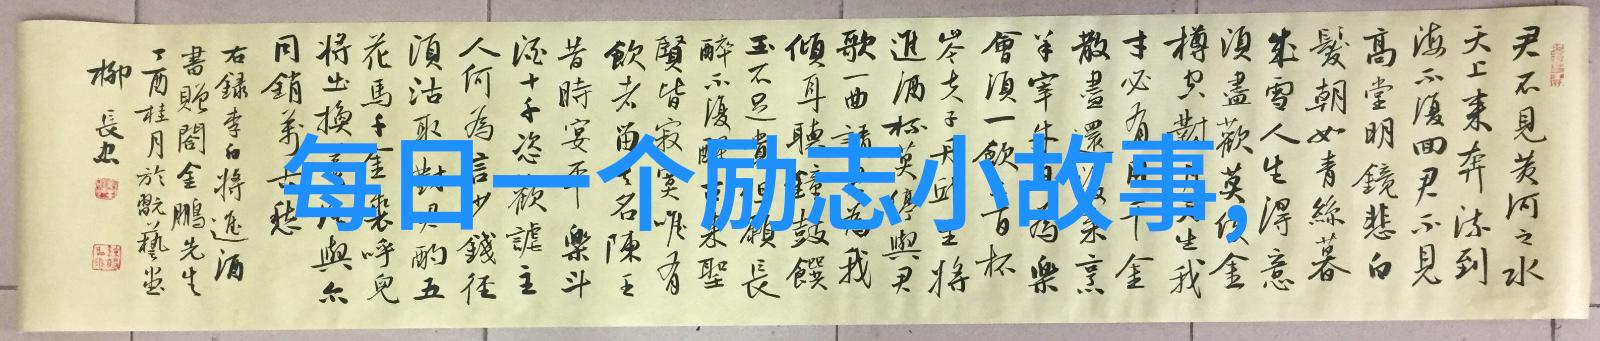 君不見黄河之水
天上来奔流到
海不復回君不見
高堂明鏡悲白
髮朝如青絲暮
成雪人生得意
須盡歡莫使金
樽空對月天生我
才必有用千金
散盡還復来烹
羊宰牛且為樂
會須一飲三百杯
岑夫子丹丘生將
進酒杯莫停與君
歌一曲請君為我
傾耳聽鐘鼓饌
玉不足貴但願長
醉不復醒古来聖
賢皆寂寞唯有
飲者留其名陳王
昔時宴平樂斗
酒十千恣歡謔主
人何為言少錢径
須沽取對君酌五
花馬千金裘呼兒
將出換美酒與尔
同銷萬古愁
右録李白將進酒
書贈閣金鵬先生
丁酉桂月於翫藝堂
柳長忠
每日一个励志小故事,